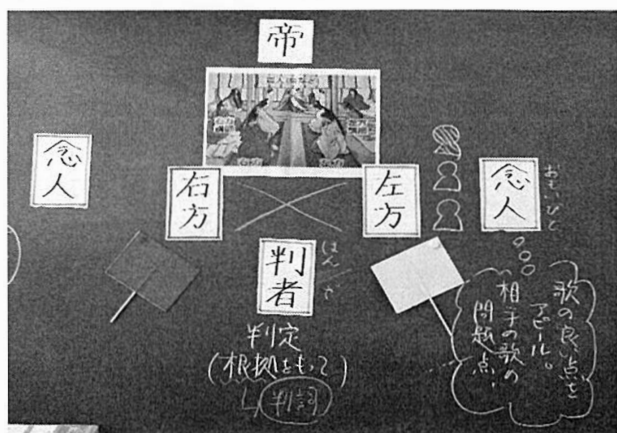 帝
念人
右方
左方
念人
おもいびと
判者
はんざ
判定
(根拠をもって)
判詞
歌の良い点を
アピール。
相手の歌の
問題点、